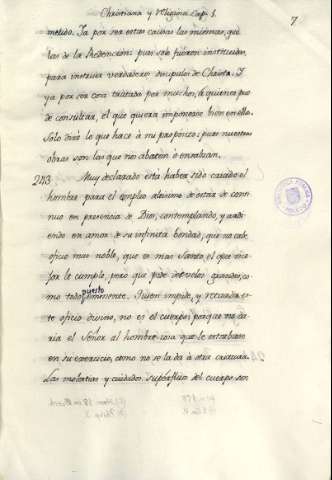 Christiana y Religiosa Cap. 1.
7
metido. Ya por ser estas causas las mismas, que
las de la Redencion: pues solo fueron instituidas,
para instruir verdaderos discipulos de Christo. Y
ya por ser cosa tratada por muchos, à quienes pue
de consultar, el que quiera imponerse bien en ello.
Solo diré lo que hace à mi proposito: pues nuestras
obras son las que nos abaten ò ensalzan.
243 Muy declarado està haber sido criado el
hombre para el empleo altisimo de estar de conti
nuo en presencia de Dios, contemplando, y ardi
endo en amor de su infinita bondad, que no cabe
oficio mas noble, que es mas Santo el que me
jor le cumple, pero que pide desvelos grandes, co
mo todo
puesto
eminente. Quien impide, y retarda es
te oficio divino, no es el cuerpo; porque no da
ria el Señor al hombre cosa que le estorbase
en su exercicio, como no se la dà à otra criatura.
Las molestias y cuidados superfluos del cuerpo son